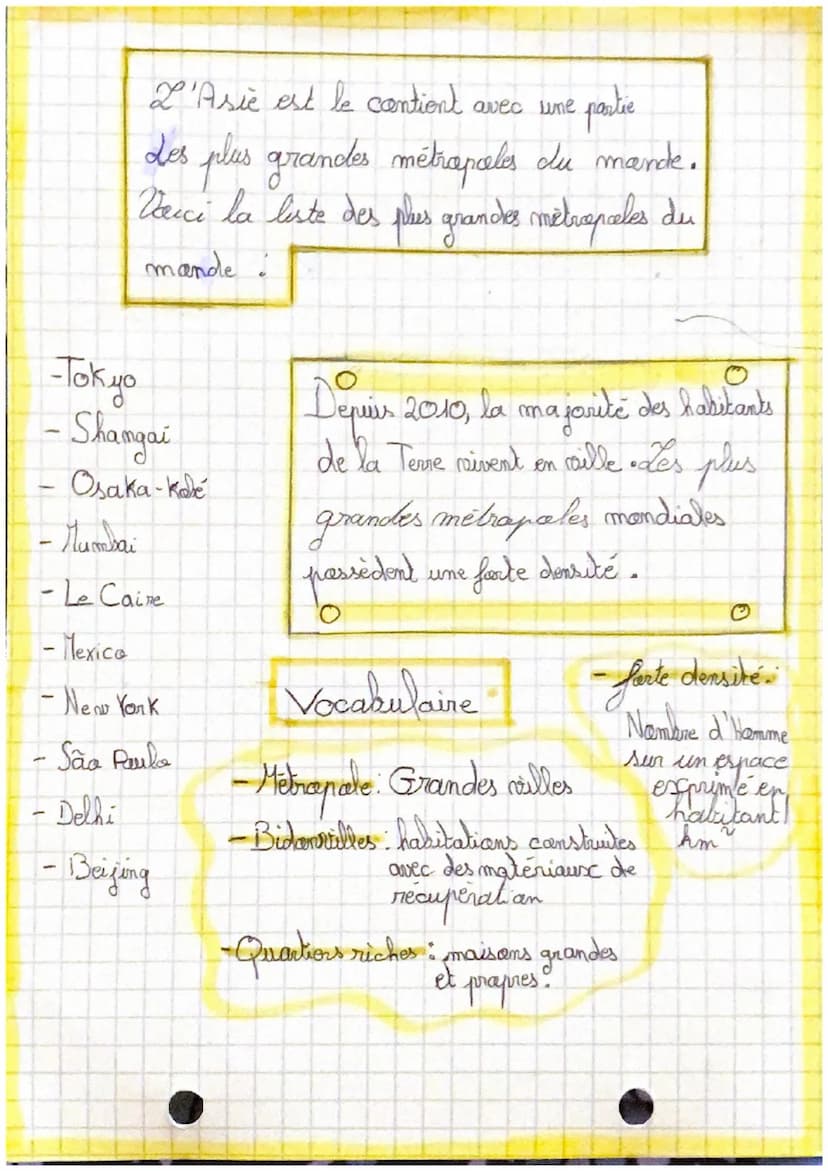 L'Asie est le contient avec une partie
des plus grandes métropoles du monde.
Voici la liste des plus grandes métropoles du
monde :
-Tokyo
- Shangaï
- Osaka-Kobé
- Mumbai
- Le Caire
- Mexico
- New York
- São Paulo
- Delhi
- Beijing
Depuis 2010, la majorité des habitants
de la Terre vivent en ville. Les plus
grandes métropoles mondiales
possèdent une forte densité.
Vocabulaire
- Métropole : Grandes villes
- Bidonvilles : habitations construites
avec des matériaux de
récupération
- Quartiers riches : maisons grandes
et propres.
- forte densité :
Nombre d'Homme
sur un espace
exprimé en
habitant/
km²